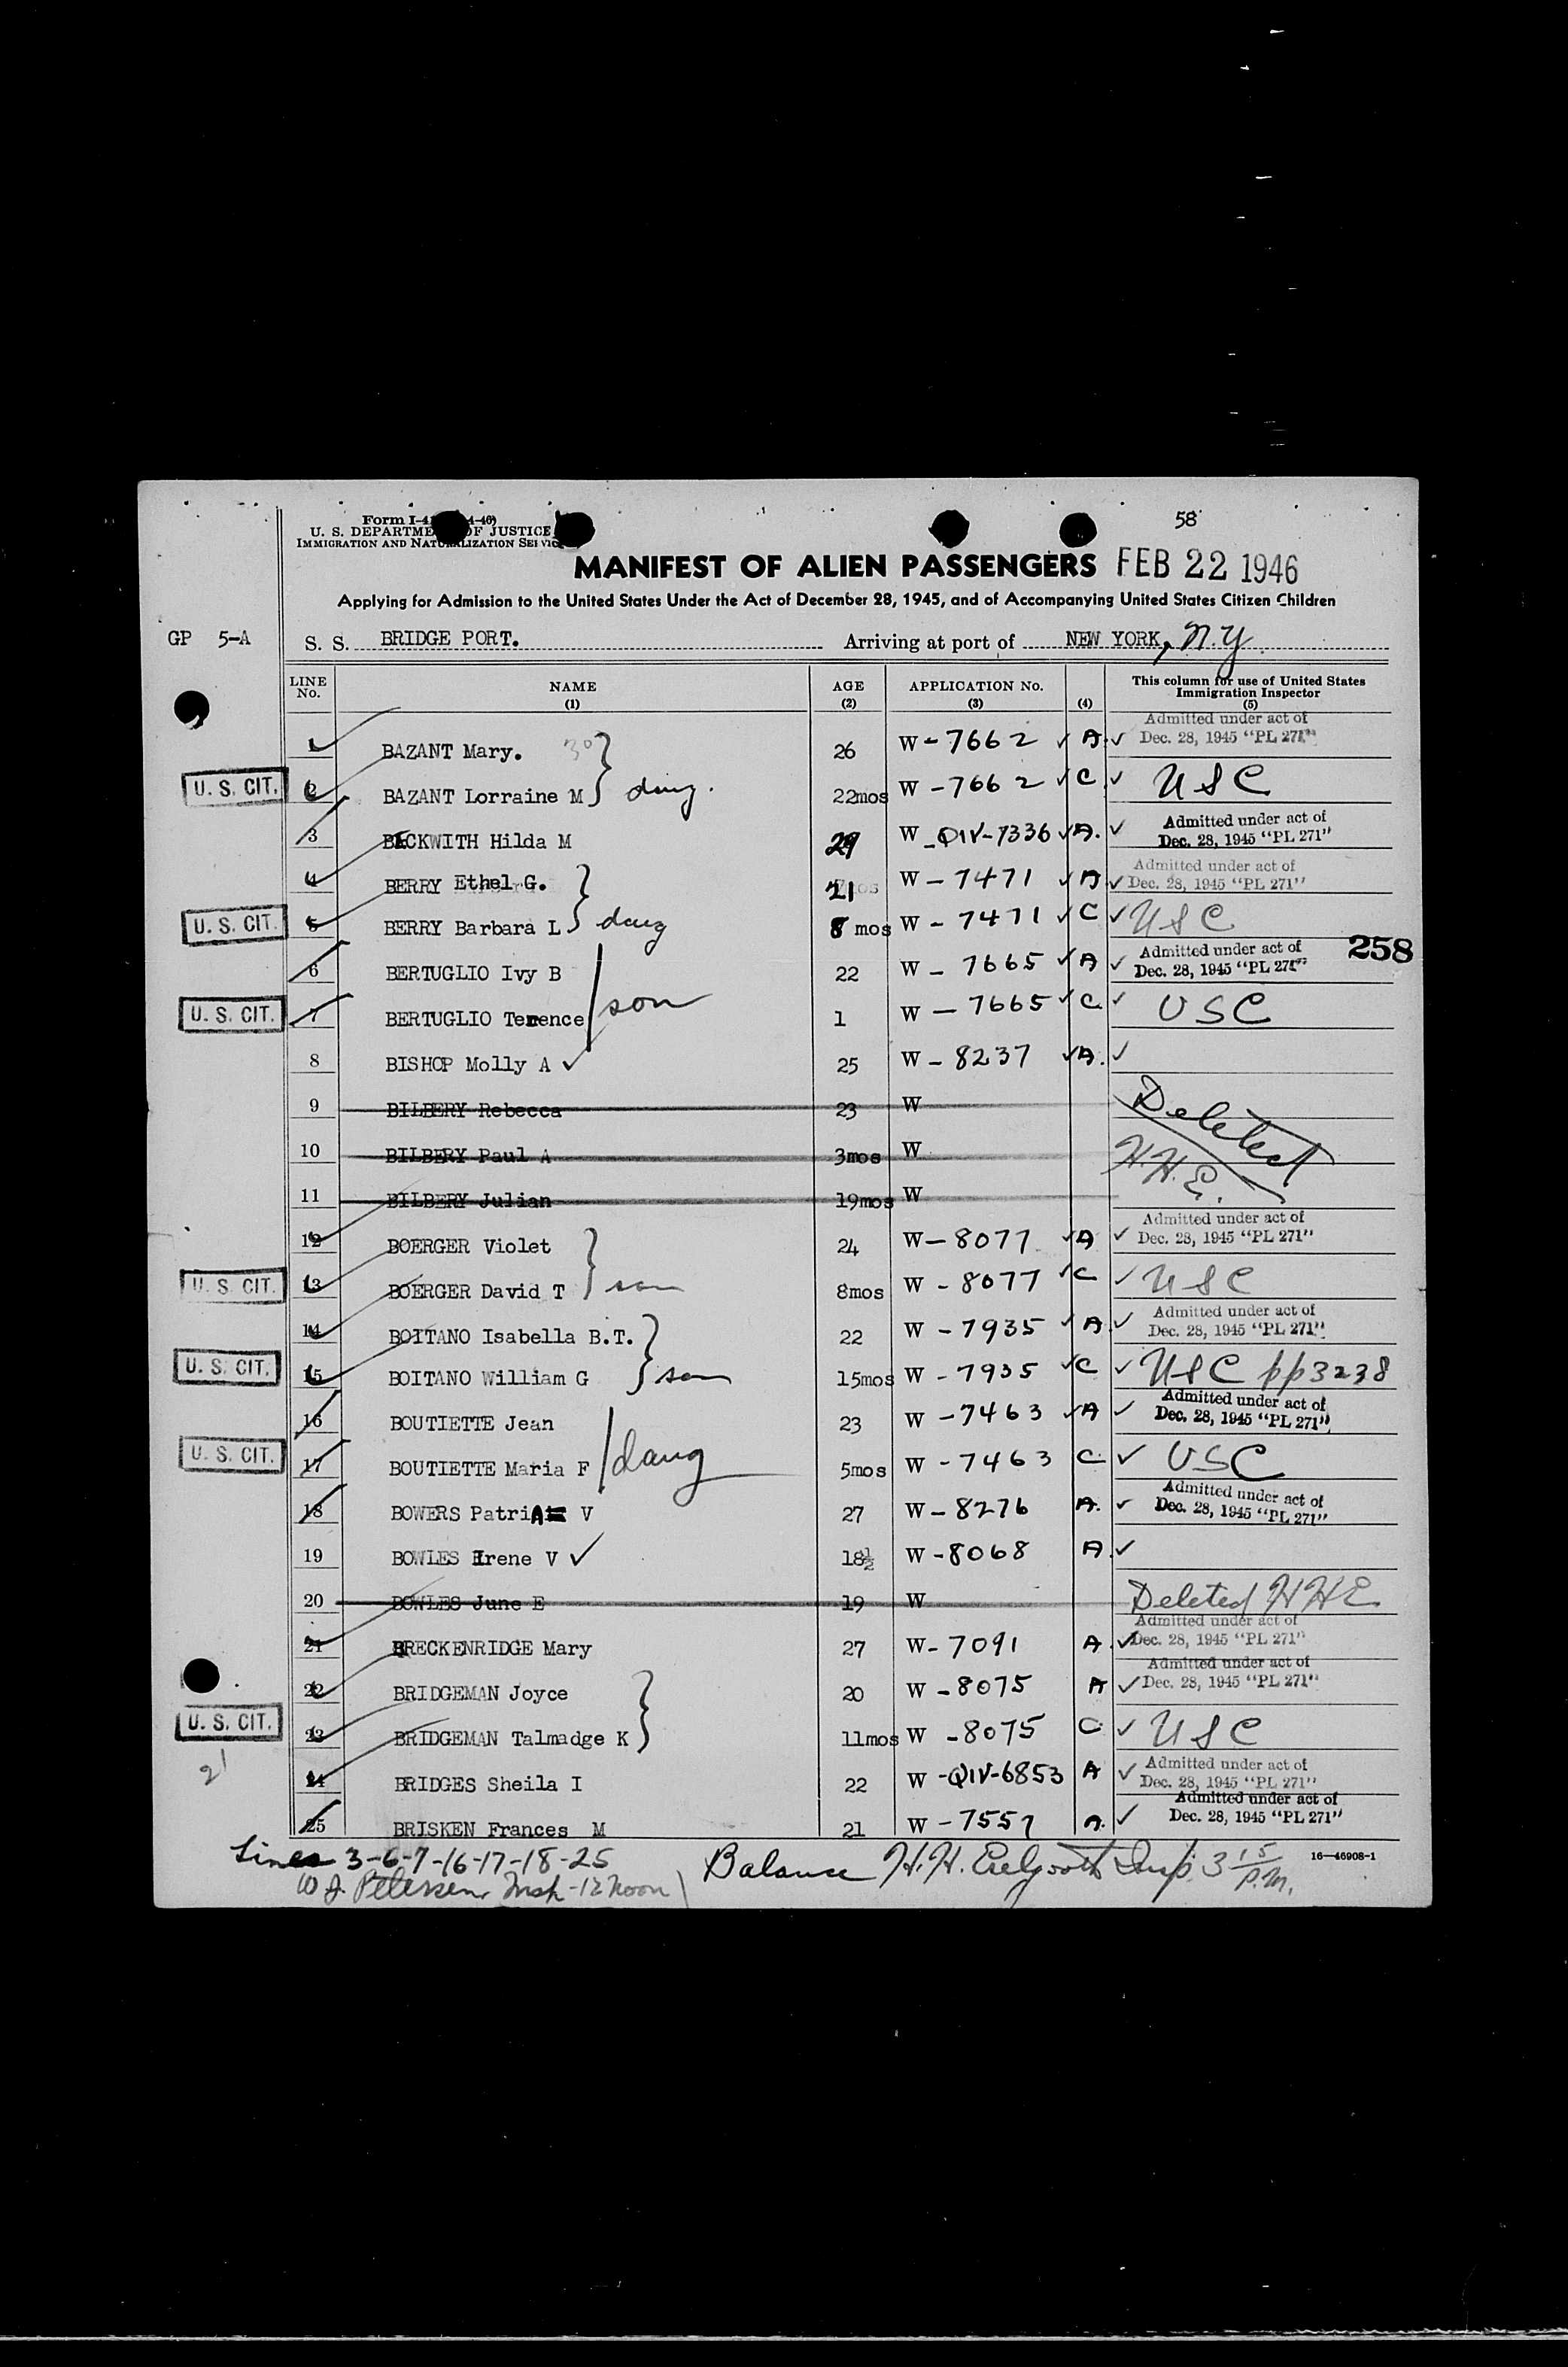 58
Form I-4 4-46)
U. S. DEPARTME OF JUSTICE
IMMIGRATION AND NATURALIZATION SERVIC
MANIFEST OF ALIEN PASSENGERS FEB 22 1946
Applying for Admission to the United States Under the Act of December 28, 1945, and of Accompanying United States Citizen Children
GP 5-A S. S. BRIDGE PORT. Arriving at port of NEW YORK, N.Y.
LINE No. NAME (1) AGE (2) APPLICATION No. (3) (4) This column for use of United States Immigration Inspector (5)
1 BAZANT Mary. 30 26 W - 7662 ✓ A. ✓ Admitted under act of Dec. 28, 1945 "PL 271"
U. S. CIT. 2 BAZANT Lorraine M } daug. 22mos W - 7662 ✓ C ✓ USC
3 BECKWITH Hilda M 29 W - QIV-7336 ✓ A. ✓ Admitted under act of Dec. 28, 1945 "PL 271"
4 BERRY Ethel G. 21 W - 7471 ✓ A ✓ Admitted under act of Dec. 28, 1945 "PL 271"
U. S. CIT. 5 BERRY Barbara L } daug 8 mos W - 7471 ✓ C ✓ USC
258
6 BERTUGLIO Ivy B 22 W - 7665 ✓ A ✓ Admitted under act of Dec. 28, 1945 "PL 271"
U. S. CIT. 7 BERTUGLIO Terence / son 1 W - 7665 ✓ C ✓ USC
8 BISHOP Molly A ✓ 25 W - 8237 ✓ A. ✓
9 BILBERY Rebecca 23 W Deleted
10 BILBERY Paul A 3mos W H.H.E.
11 BILBERY Julian 19mos W
12 BOERGER Violet 24 W - 8077 ✓ A ✓ Admitted under act of Dec. 28, 1945 "PL 271"
U. S. CIT. 13 BOERGER David T } son 8mos W - 8077 ✓ C ✓ USC
14 BOITANO Isabella B.T. 22 W - 7935 ✓ A. ✓ Admitted under act of Dec. 28, 1945 "PL 271"
U. S. CIT. 15 BOITANO William G } son 15mos W - 7935 ✓ C ✓ USC pp3238
16 BOUTIETTE Jean 23 W - 7463 ✓ A ✓ Admitted under act of Dec. 28, 1945 "PL 271"
U. S. CIT. 17 BOUTIETTE Maria F / daug 5mos W - 7463 C ✓ USC
18 BOWERS PatriA V 27 W - 8276 A. ✓ Admitted under act of Dec. 28, 1945 "PL 271"
19 BOWLES Irene V ✓ 18½ W - 8068 A. ✓
20 BOWLES June E 19 W Deleted HHE
21 BRECKENRIDGE Mary 27 W - 7091 A. ✓ Admitted under act of Dec. 28, 1945 "PL 271"
22 BRIDGEMAN Joyce 20 W - 8075 A ✓ Admitted under act of Dec. 28, 1945 "PL 271"
U. S. CIT. 23 BRIDGEMAN Talmadge K } 11mos W - 8075 C ✓ USC
21
24 BRIDGES Sheila I 22 W - QIV-6853 A ✓ Admitted under act of Dec. 28, 1945 "PL 271"
25 BRISKEN Frances M 21 W - 7557 A. ✓ Admitted under act of Dec. 28, 1945 "PL 271"
Lines 3-6-7-16-17-18-25 Balance H.H. Insp. 3 15 P.M. 16—46908-1
W J. Petersen Insp - 12 Noon